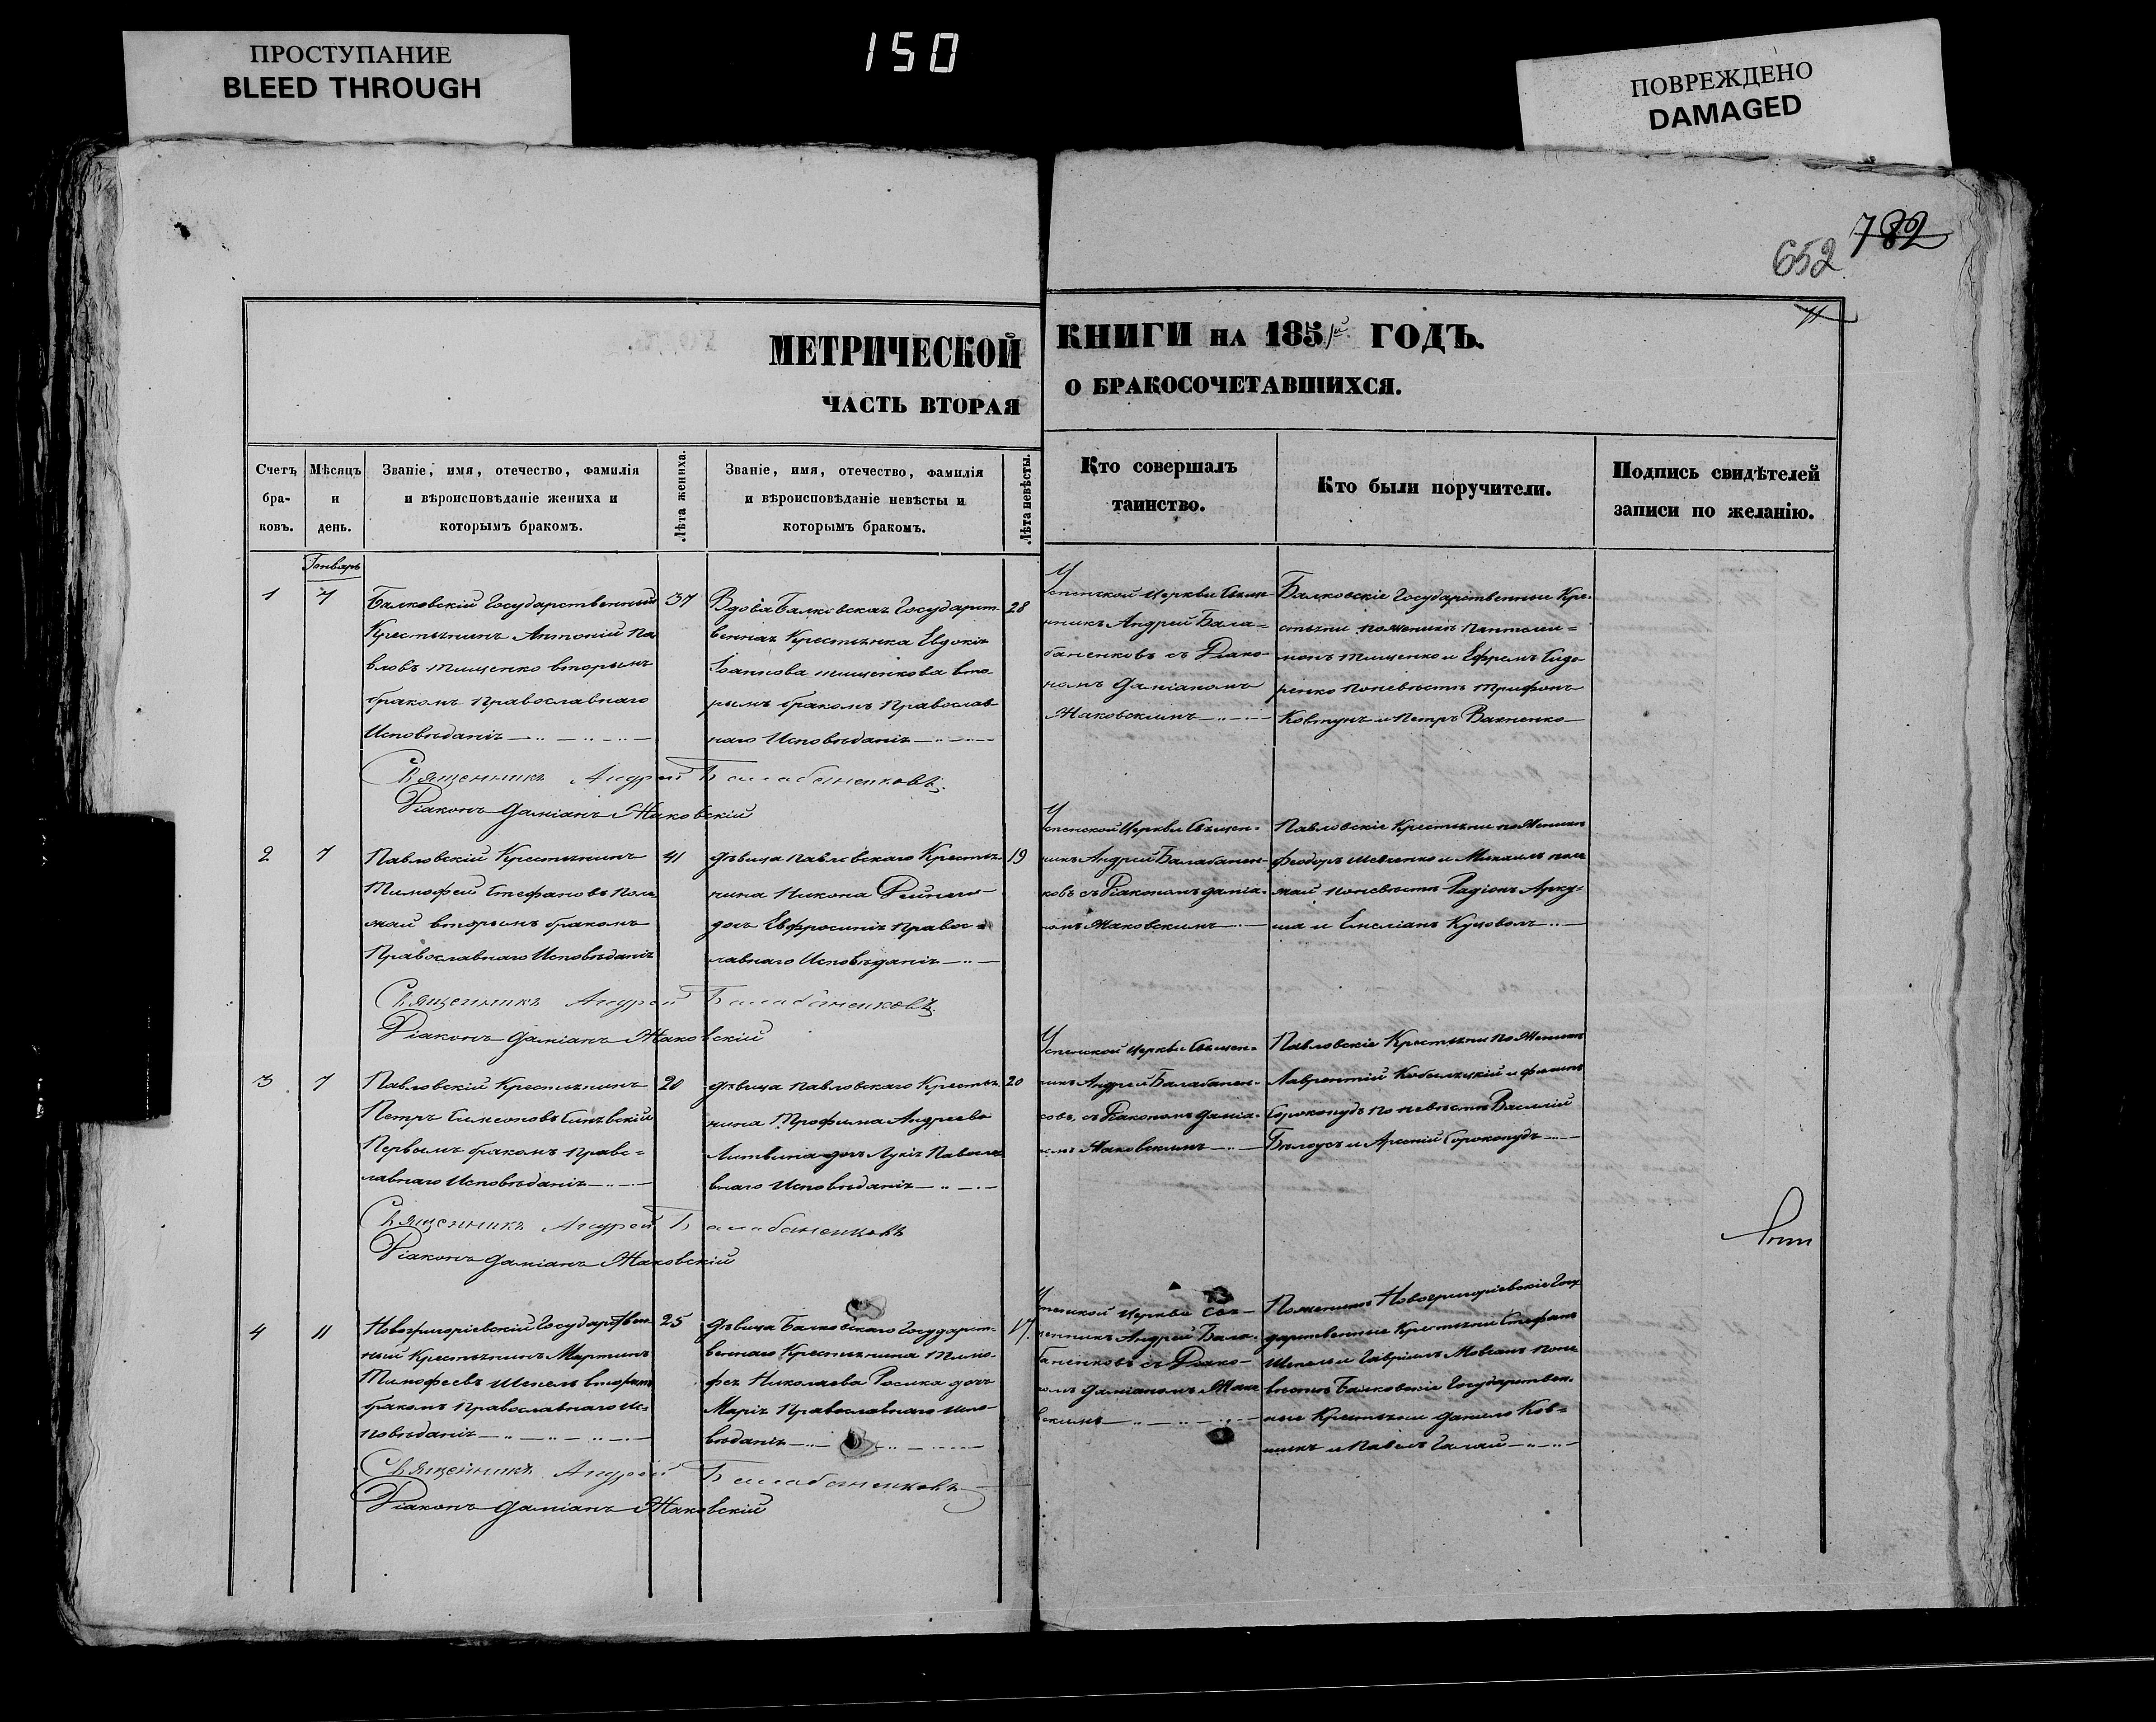 ПРОСТУПАНИЕ
BLEED THROUGH
150
ПОВРЕЖДЕНО
DAMAGED
782
652
МЕТРИЧЕСКОЙ
ЧАСТЬ ВТОРАЯ
КНИГИ НА 1851й ГОДЪ.
О БРАКОСОЧЕТАВШИХСЯ.
Счетъ бра-ковъ.
Мѣсяцъ и день.
Званіе, имя, отечество, фамилія
и вѣроисповѣданіе жениха и
которымъ бракомъ.
Лѣта жениха.
Званіе, имя, отечество, фамилія
и вѣроисповѣданіе невѣсты и
которымъ бракомъ.
Лѣта невѣсты.
Кто совершалъ
таинство.
Кто были поручители.
Подпись свидѣтелей
записи по желанію.
Генварь
1
7
Балковскій Государственный
Крестьянинъ Антоній Па
вловъ Тищенко вторымъ
бракомъ Православнаго
Исповѣданія
37
Вдова Балковская Государст-
венная Крестьянка Евдокія
Іоаннова Тищенкова вто-
рымъ бракомъ Православ
наго Исповѣданія
28
Успенской Церкви Свяще
нникъ Андрей Бала=
баненковъ съ Діако-
номъ Даміаномъ
Жаковскимъ
Балковскіе Государственные Кре-
стьяни по женихѣ Пантелеи=
монъ Тищенко и Ефремъ Сидо
ренко по невѣстѣ Трифонъ
Ковтунъ и Петръ Вахненко
Священникъ Андрей Балабаненковъ
Діаконъ Даміанъ Жаковскій
2
7
Павловскій Крестьянинъ
Тимофей Стефановъ
вторымъ бракомъ
Православнаго Исповѣданія
41
Дѣвица Павловскаго Крестья-
нина Никона
дочь Евфросинія Правос=
лавнаго Исповѣданія
19
Успенской Церкви Священ-
никъ Андрей Балабанен-
ковъ съ Діакономъ Даміа-
номъ Жаковскимъ
Павловскіе Крестьяни по женихѣ
Феодоръ Шевченко и Михаилъ
по невѣстѣ Радіонъ Арку=
ша и Емеліанъ
Священникъ Андрей Балабаненковъ
Діаконъ Даміанъ Жаковскій
3
7
Павловскій Крестьянинъ
Петръ Симеоновъ
Первымъ бракомъ Право=
лавнаго Исповѣданія
20
Дѣвица Павловскаго Крестья-
нина Трофима Андреева
Литвина дочь Лукія
внаго Исповѣданія
20
Успенской Церкви Священ-
никъ Андрей Балабанен-
ковъ, съ Діакономъ Даміа-
номъ Жаковскимъ
Павловскіе Крестьяни по женихѣ
Лаврентій Кобыляцкій и
Сорокопудъ по невѣстѣ Василій
Бѣлоусъ и Арсеній Сорокопудъ
Священникъ Андрей Балабаненковъ
Діаконъ Даміанъ Жаковскій
4
11
Новогригоріевскій Государствен-
ный Крестьянинъ Мартинъ
Тимофеевъ Шепель вторымъ
бракомъ Православнаго Ис=
повѣданія
25
Дѣвица Балковскаго Государст-
веннаго Крестьянина Тимо-
фея Николаева дочь
Марія Православнаго Испо-
вѣданія
17
Успенской Церкви Свя-
щенникъ Андрей Бала-
баненковъ съ Діако-
номъ Даміаномъ Жако
вскимъ
По женихѣ Новогригоріевскіе Госу
дарственные Крестьяни Стефанъ
Шепель и Гавріилъ Мовчанъ по не
вѣстѣ Балковскіе Государствен-
ные Крестьяни Данило Ков=
и Павелъ Галай
Священникъ Андрей Балабаненковъ
Діаконъ Даміанъ Жаковскій